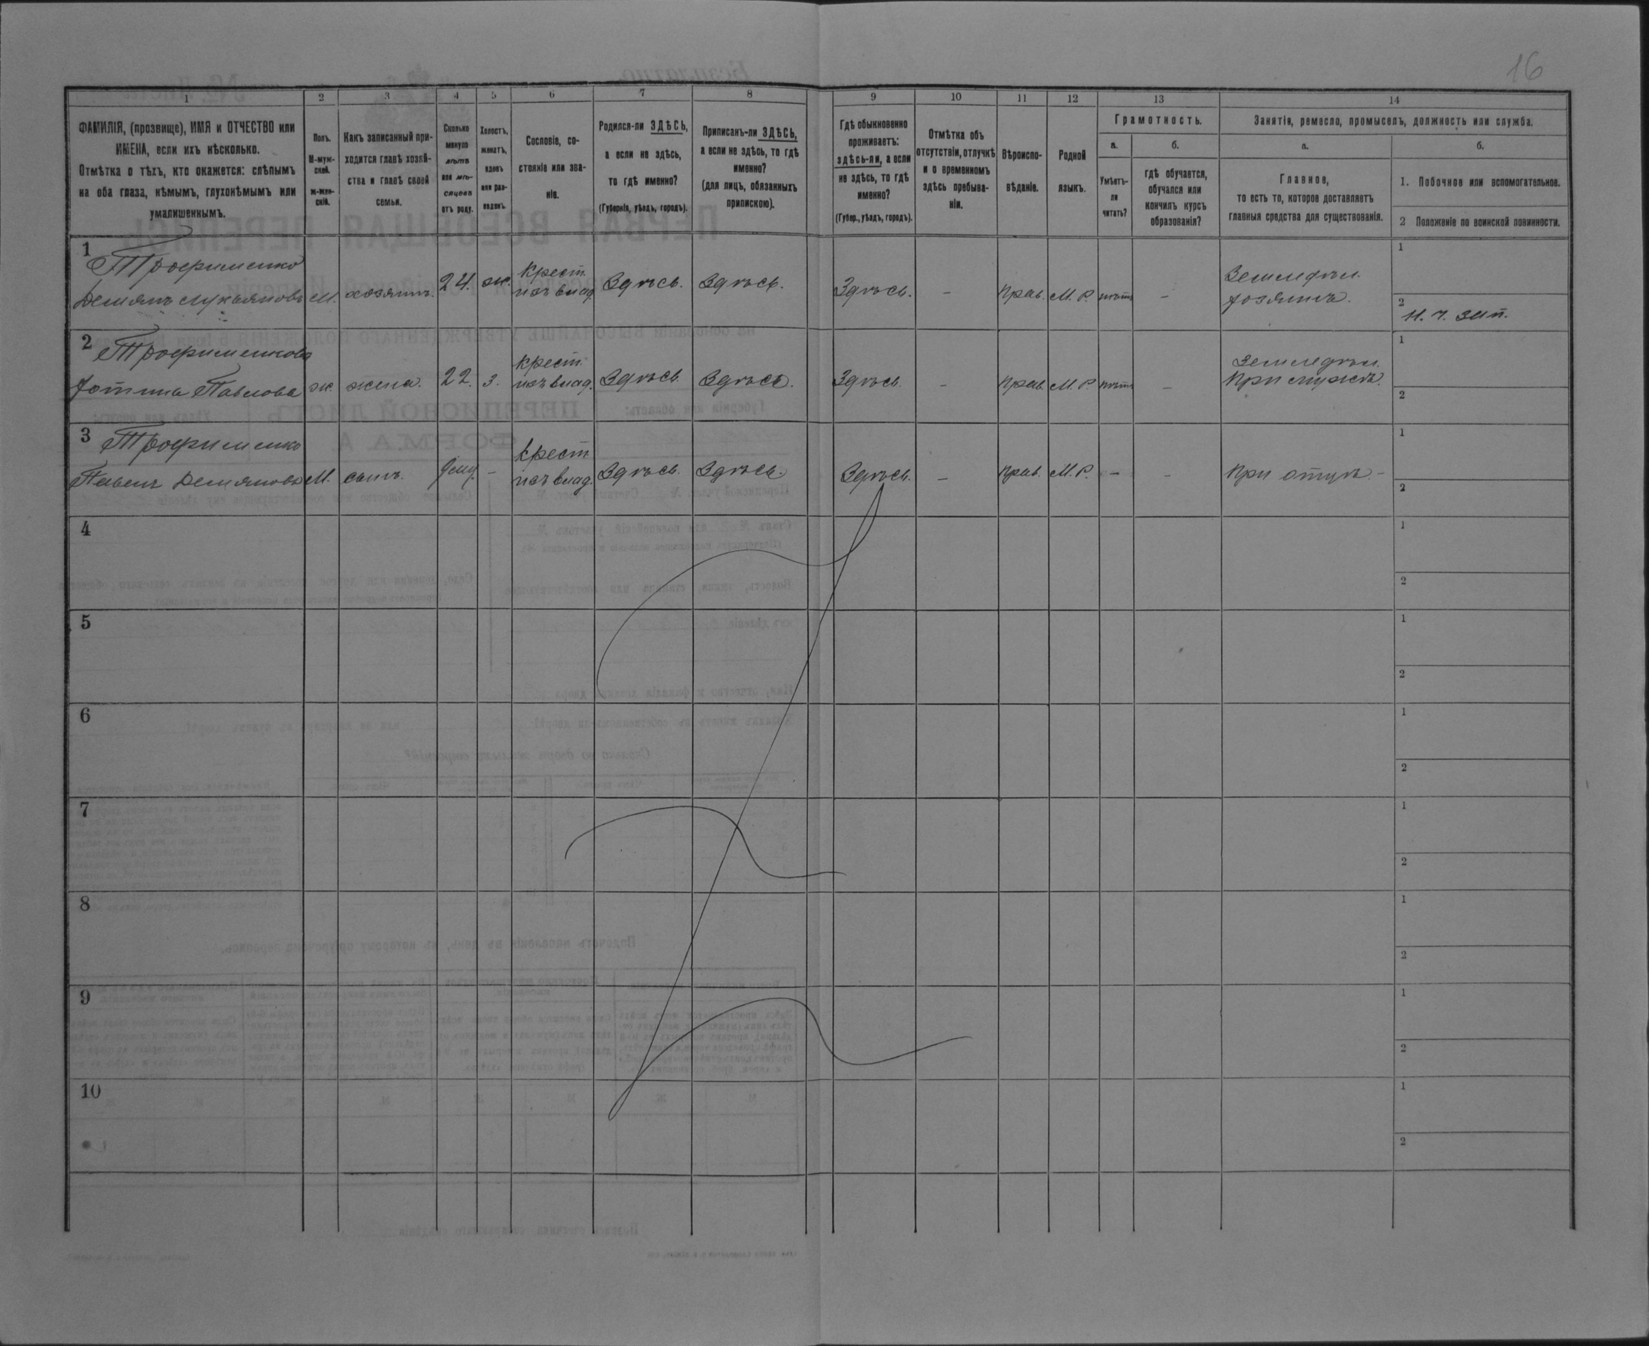 16
1
2
3
4
5
6
7
8
9
10
11
12
13
14
ФАМИЛІЯ, (прозвище), ИМЯ и ОТЧЕСТВО или
ИМЕНА, если ихъ нѣсколько.
Отмѣтка о тѣхъ, кто окажется: слѣпымъ
на оба глаза, нѣмымъ, глухонѣмымъ или
умалишеннымъ.
Полъ.
М-муж-
ской.
ж-жен-
скій.
Какъ записанный при-
ходится главѣ хозяй-
ства и главѣ своей
семьи.
Сколько
минуло
лѣтъ
или мѣ-
сяцевъ
отъ роду.
Холостъ,
женатъ,
вдовъ
или раз-
веденъ.
Сословіе, со-
стояніе или зва-
ніе.
Родился-ли ЗДѢСЬ,
а если не здѣсь,
то гдѣ именно?
(Губернія, уѣздъ, городъ).
Приписанъ-ли ЗДѢСЬ,
а если не здѣсь, то гдѣ
именно?
(для лицъ, обязанныхъ
припискою).
Гдѣ обыкновенно
проживаетъ:
здѣсь-ли, а если
не здѣсь, то гдѣ
именно?
(Губер., уѣздъ, городъ).
Отмѣтка объ
отсутствіи, отлучкѣ
и о временномъ
здѣсь пребыва-
ніи.
Вѣроиспо-
вѣданіе.
Родной
языкъ.
Грамотность.
а.
Умѣетъ-
ли
читать?
б.
гдѣ обучается,
обучался или
кончилъ курсъ
образованія?
Занятія, ремесло, промыселъ, должность или служба.
а.
Главное,
то есть то, которое доставляетъ
главныя средства для существованія.
б.
1. Побочное или вспомогательное.
2 Положеніе по воинской повинности.
1
Трофименко
Демьянъ Лукьяновъ М. хозяинъ. 24. ж. крест. изъ влад. Здѣсь. Здѣсь. Здѣсь. - Прав. М. Р. нѣтъ - Земледѣл.
хозяинъ.
1
2
Н. ч. зап.
2
Трофименкова
Фотина Павлова ж жена. 22. з. крест. изъ влад. Здѣсь Здѣсь. Здѣсь - Прав. М. Р. нѣтъ - Земледѣл.
При мужѣ.
1
2
3
Трофименко
Павелъ Демьяновъ М. сынъ. - крест. изъ влад. Здѣсь. Здѣсь. Здѣсь. - Прав. М. Р. - - При отцѣ -
1
2
4
1
2
5
1
2
6
1
2
7
1
2
8
1
2
9
1
2
10
1
2